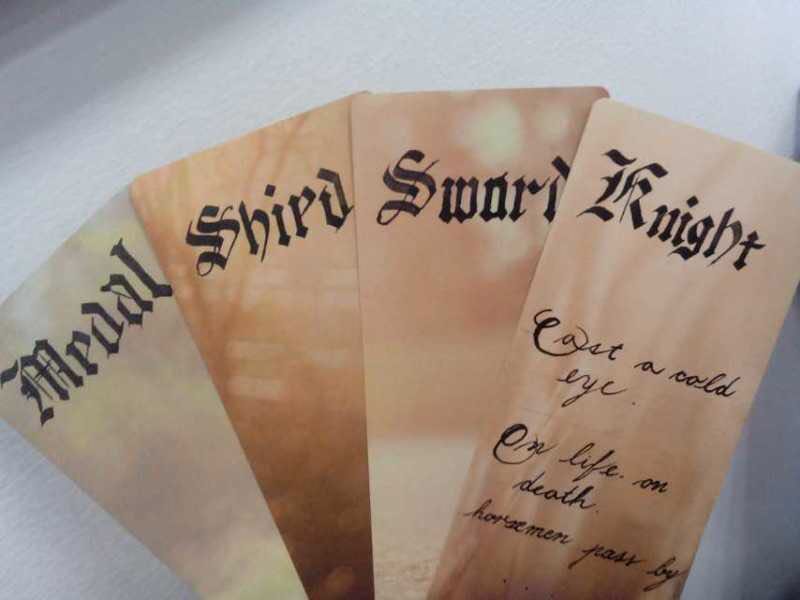 Medal
Shied
Sword
Knight
Cast a cold
eye.
On life. on
death.
horsemen pass by